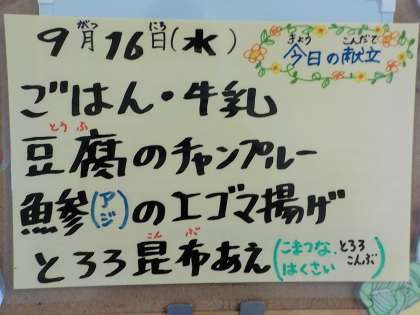 がつ にち
9月16日(水)
きょう こんだて
今日の献立
ごはん・牛乳
とうふ
豆腐のチャンプルー
鯵(アジ)のエゴマ揚げ
こんぶ
とろろ昆布あえ(こまつな、とろろこんぶ はくさい)